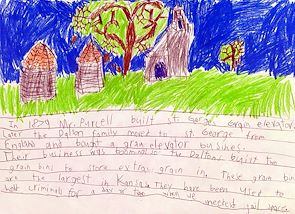 In 1879 Mr. Purcell built St George grain elevator.
Later the Dalton family moved to St. George from
England and bought a grain elevator busines.
Their business was booming. The Daltons built the
grain bins to store extra grain in. These grain bins
are the largest in Kansas. They have been used to
hold criminals for a day or two when we needed jail space.